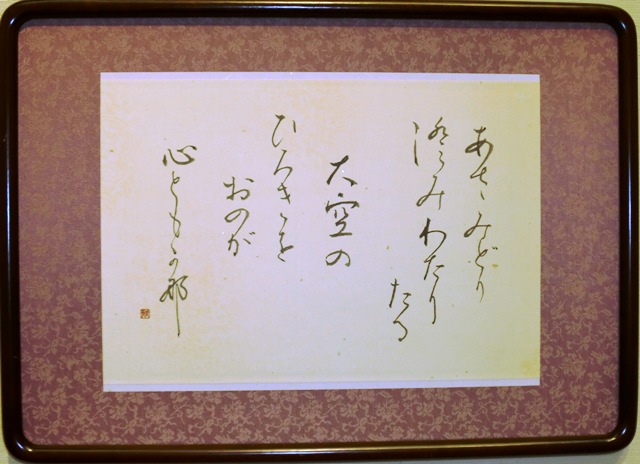 あさみどり
澄みわたり
たる
大空の
ひろきを
おのが
心ともか那